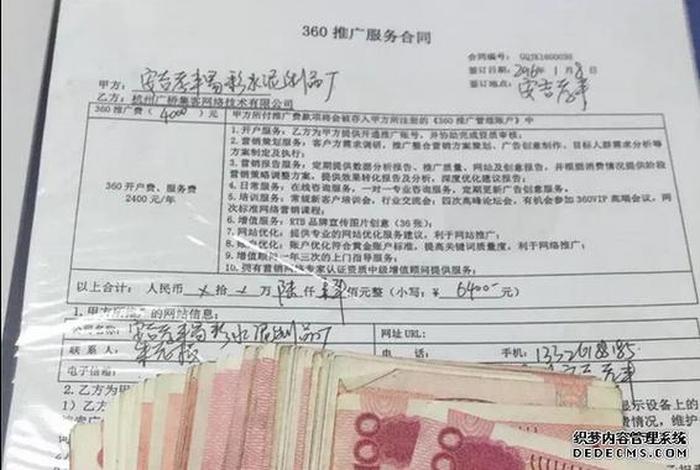 360 推广服务合同
合同编号: GQJK1600036
签订日期: 2016年1月8日
甲方:
签订地点: 安吉孝丰
乙方: 杭州广桥集客网络技术有限公司
360 推广费( 4000 )元
甲方所付推广费款项将会被存入甲方所注册的《360 推广管理账户》中
360 开户费、服务费
2400 元/年
1. 开户服务: 乙方为甲方提供开通推广账号, 并协助完成资质审核;
2. 营销策划服务: 客户方需求调研, 推广整合营销方案策划、广告创意制作、目标人群需求分析等
方案制定及执行;
3. 营销报告服务: 定期提供数据分析报告、推广质量、网站及创意报告, 并根据消费情况提供阶段
营销策略调整方案, 提供效果转化报告及分析、深度优化建议报告;
4. 日常服务: 在线咨询服务, 一对一专业咨询服务, 定期更新广告创意服务。
5. 培训服务: 常规新客户培训会, 行业交流会; 四次高峰论坛会, 有机会参加360VIP 高端会议, 两
次标准网络营销课程;
6. 增值服务: RTB 品牌宣传图片创意(36 张);
7. 网站优化: 提供专业的网站优化服务建议, 利于网站推广;
账户优化符合黄金账户标准, 提高关键词质量度, 利于网络推广;
一年三次的上门指导服务;
10. 拥有营销网络专家认证资质中级增值顾问提供服务;
以上合计: 人民币 × 拾 × 万 陆 仟 肆 佰元整 (小写: ¥ 6400 元)
1. 甲方所 的网站信息:
网址 URL:
联 系 人
电 话
手机:
电子信箱:
2. 在甲
1) 乙方
显示设备上的
费情况, 维护
100
织梦内容管理系统
DEDECMS.COM